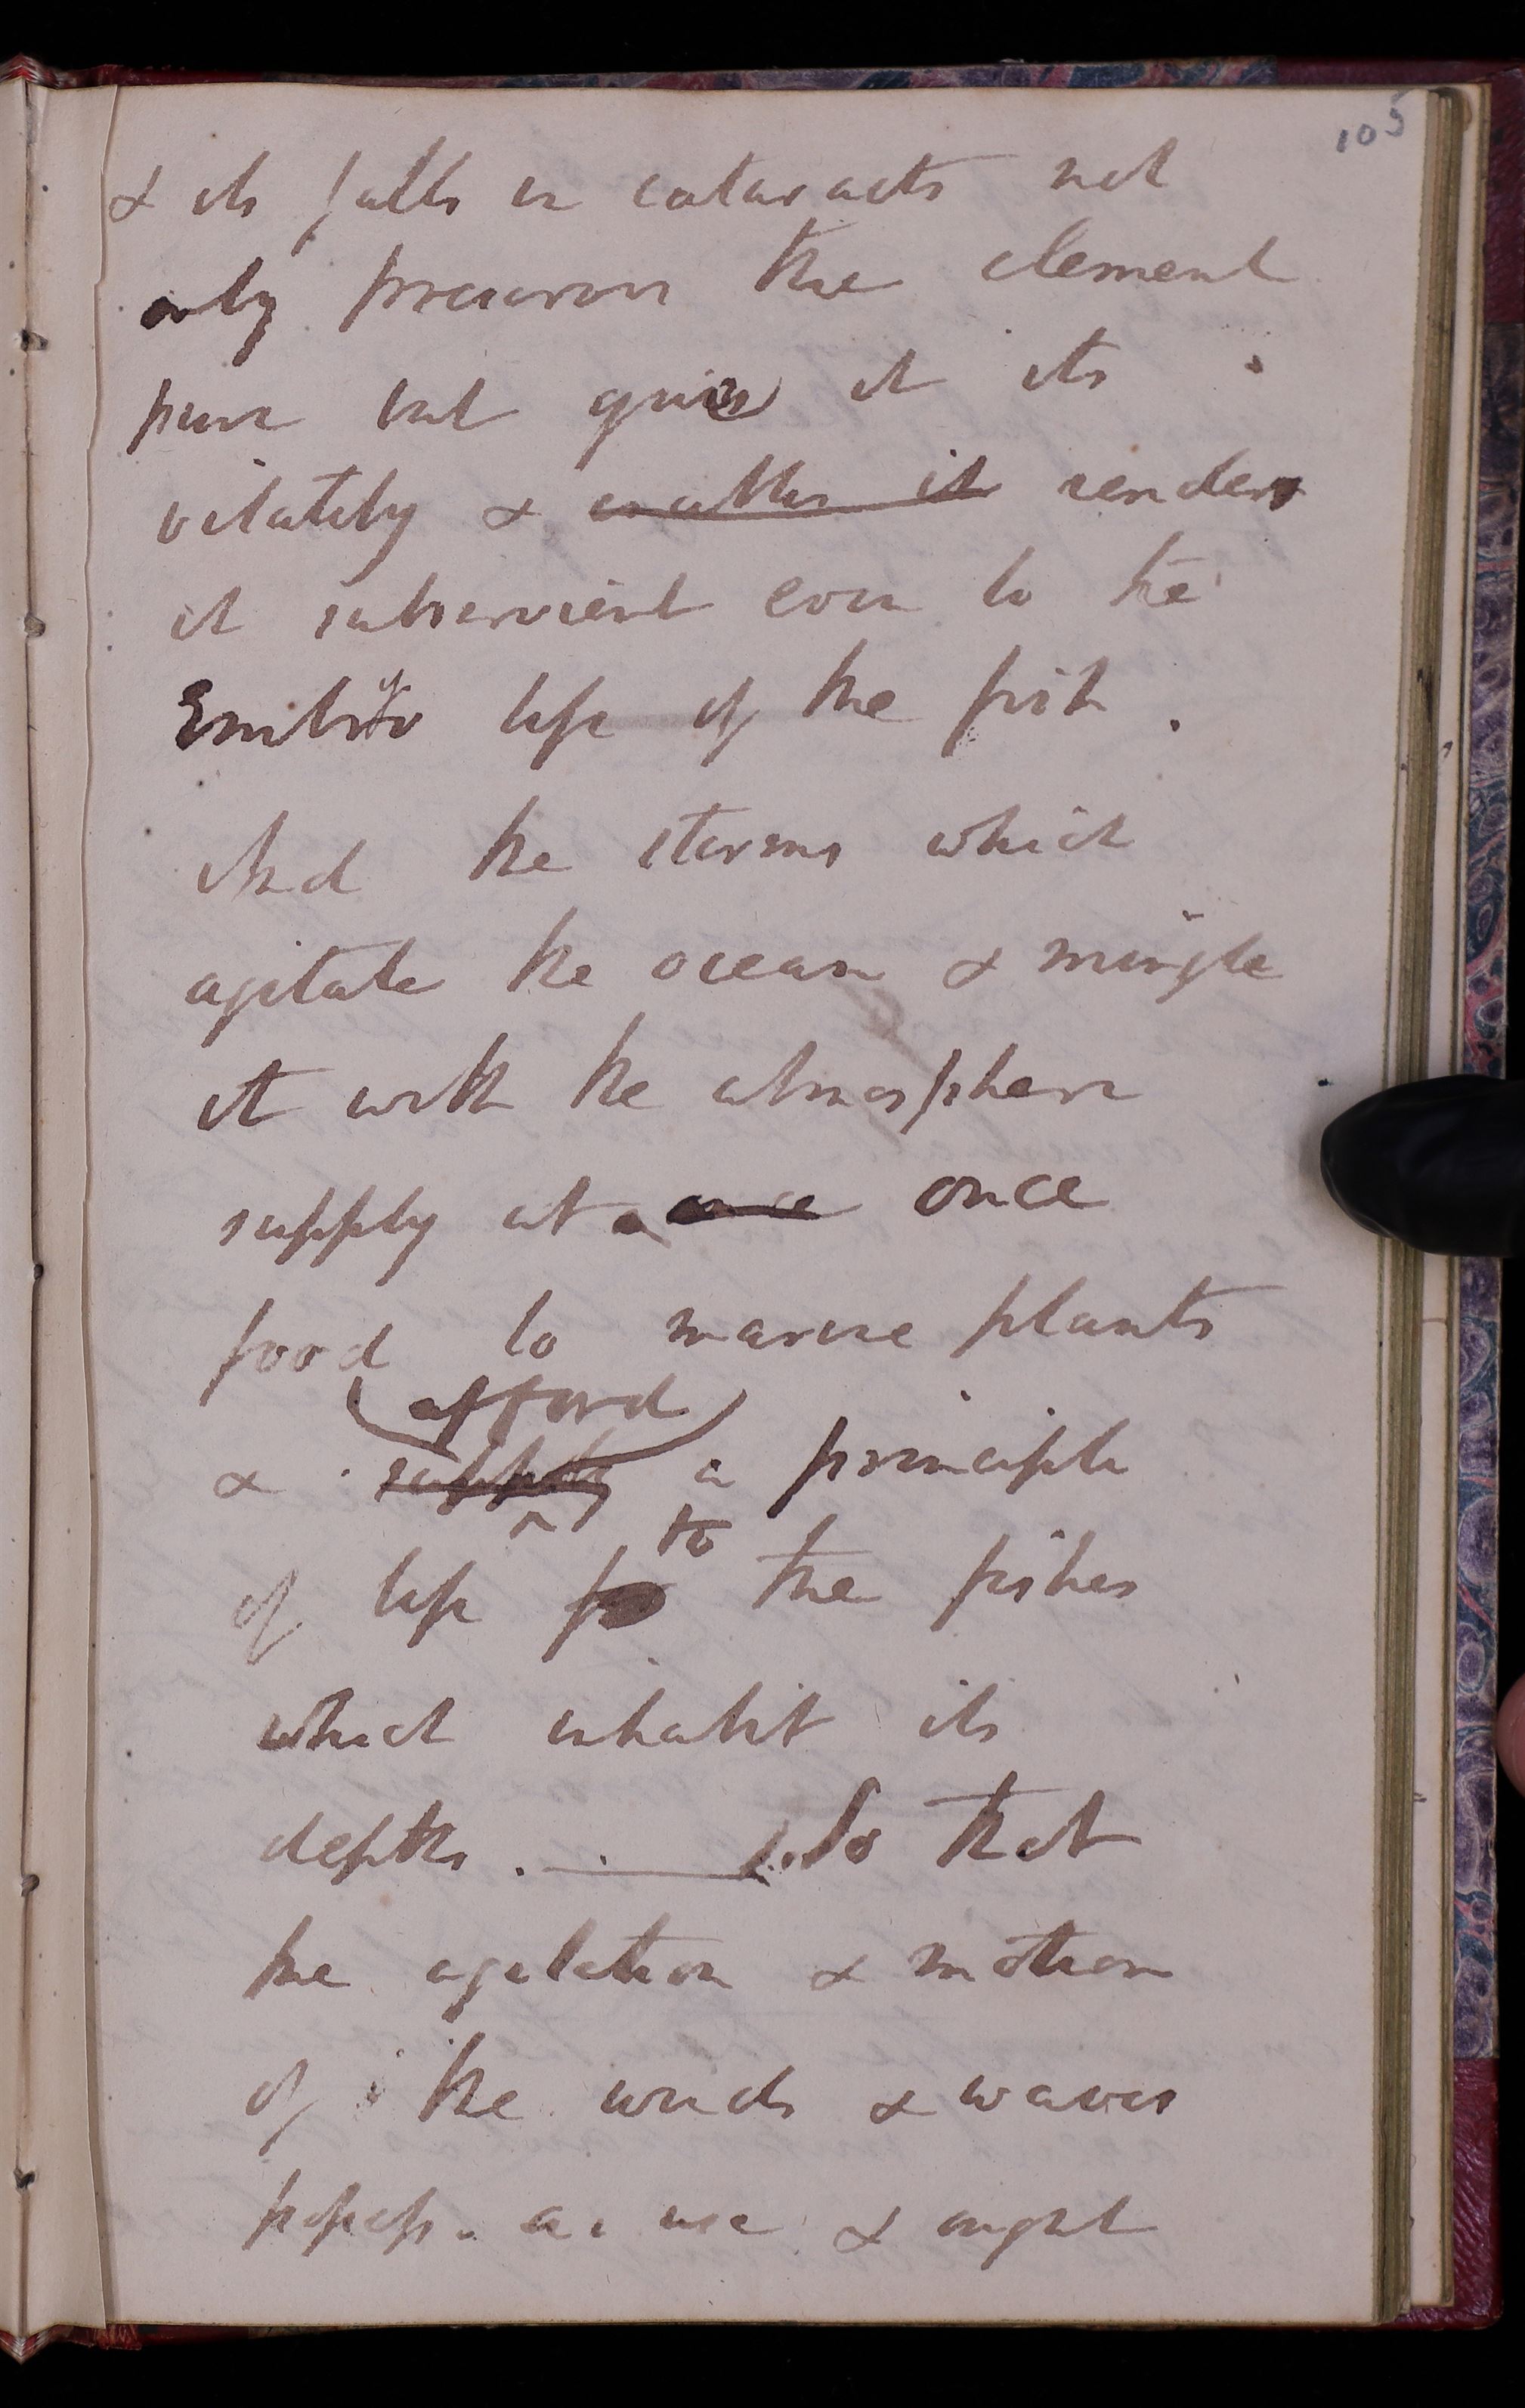 105
& its falls in cataracts not
only preserves the element
pure but gives it its
vitality & enables it renders
it subservient even to the
Embryo life of the fish.
And the storms which
agitate the ocean & mingle
it with the atmosphere
supply at once once
food to marine plants
afford
& supply a principle
to
of life for the fishes
which inhabit its
depths. So that
the agitation & motion
of the winds & waves
possess a use & ought